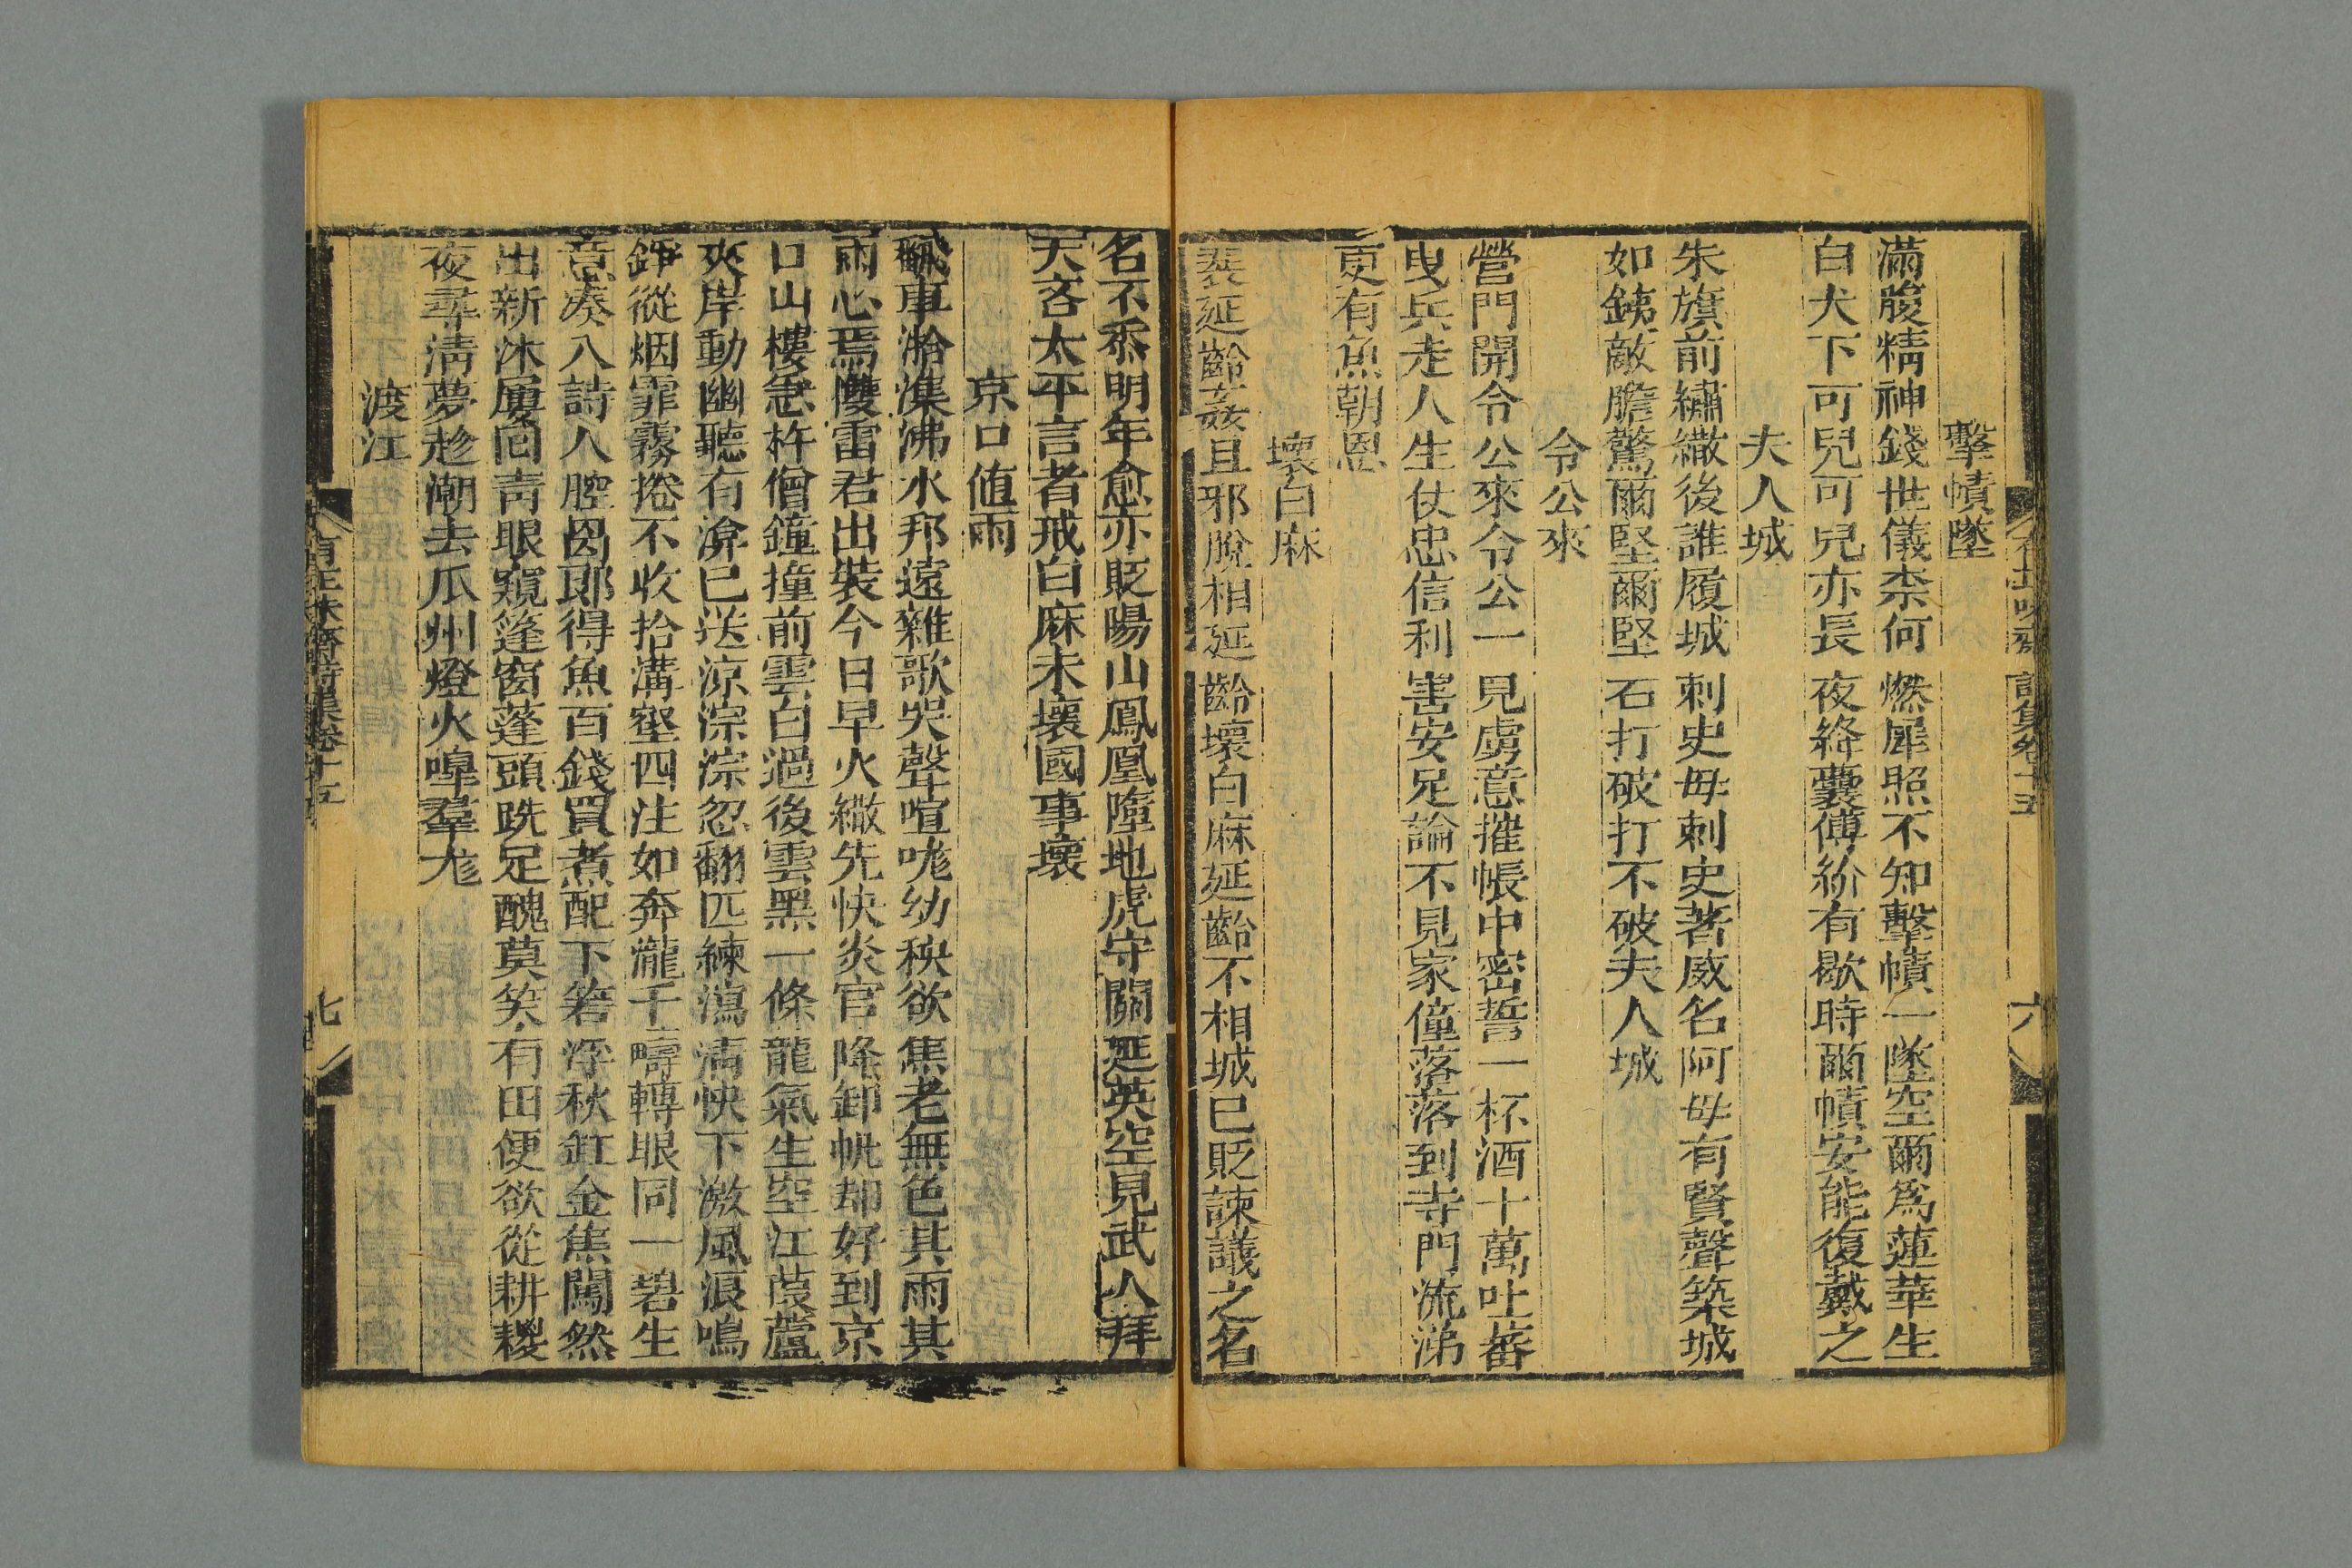 擊幘墜
滿腹精神錢世儀柰何燃犀照不知擊幘一墜空爾爲蓮華生
白犬下可兒可兒亦長夜絳囊傅紛有歇時爾幘安能復戴之
夫人城
朱旗前繡繖後誰履城刺史母刺史著威名阿母有賢聲築城
如銕敵膽驚爾堅爾堅石打破打不破夫人城
令公來
營門開令公來令公一見虜意摧帳中密誓一杯酒十萬吐蕃
曳兵走人生仗忠信利害安足論不見家僮落落到寺門流涕
更有魚朝恩
壞白麻
裴延齡姦且邪脫相延齡壞白麻延齡不相城已貶諫議之名
名不忝明年愈亦貶陽山鳳凰墮地虎守關延英空見武人拜
天吝太平言者戒白麻未壞國事壞
京口値雨
颿車潝潗沸水邦遠雜歌哭聲喧咙幼秧欲焦老無色其雨其
雨心焉慺雷君出裝今日早火繖先快炎官降卸帆却好到京
口山樓急杵僧鐘撞前雲白過後雲黑一條龍氣生空江葭蘆
夾岸動幽聽有渰已送涼淙淙忽翻匹練瀉滿快下激風浪鳴
錚從烟霏霧捲不收拾溝壑四注如奔瀧千疇轉眼同一碧生
意湊入詩人腔因郞得魚百錢買煮配下箬浮秋缸金焦闖然
出新沐屢囘靑眼窺篷窗蓬頭跣足醜莫笑有田便欲從耕耰
夜尋淸夢趁潮去瓜州燈火嘷羣尨
渡江
有正味齋詩集卷十五 六
有正味齋詩集卷十五 七